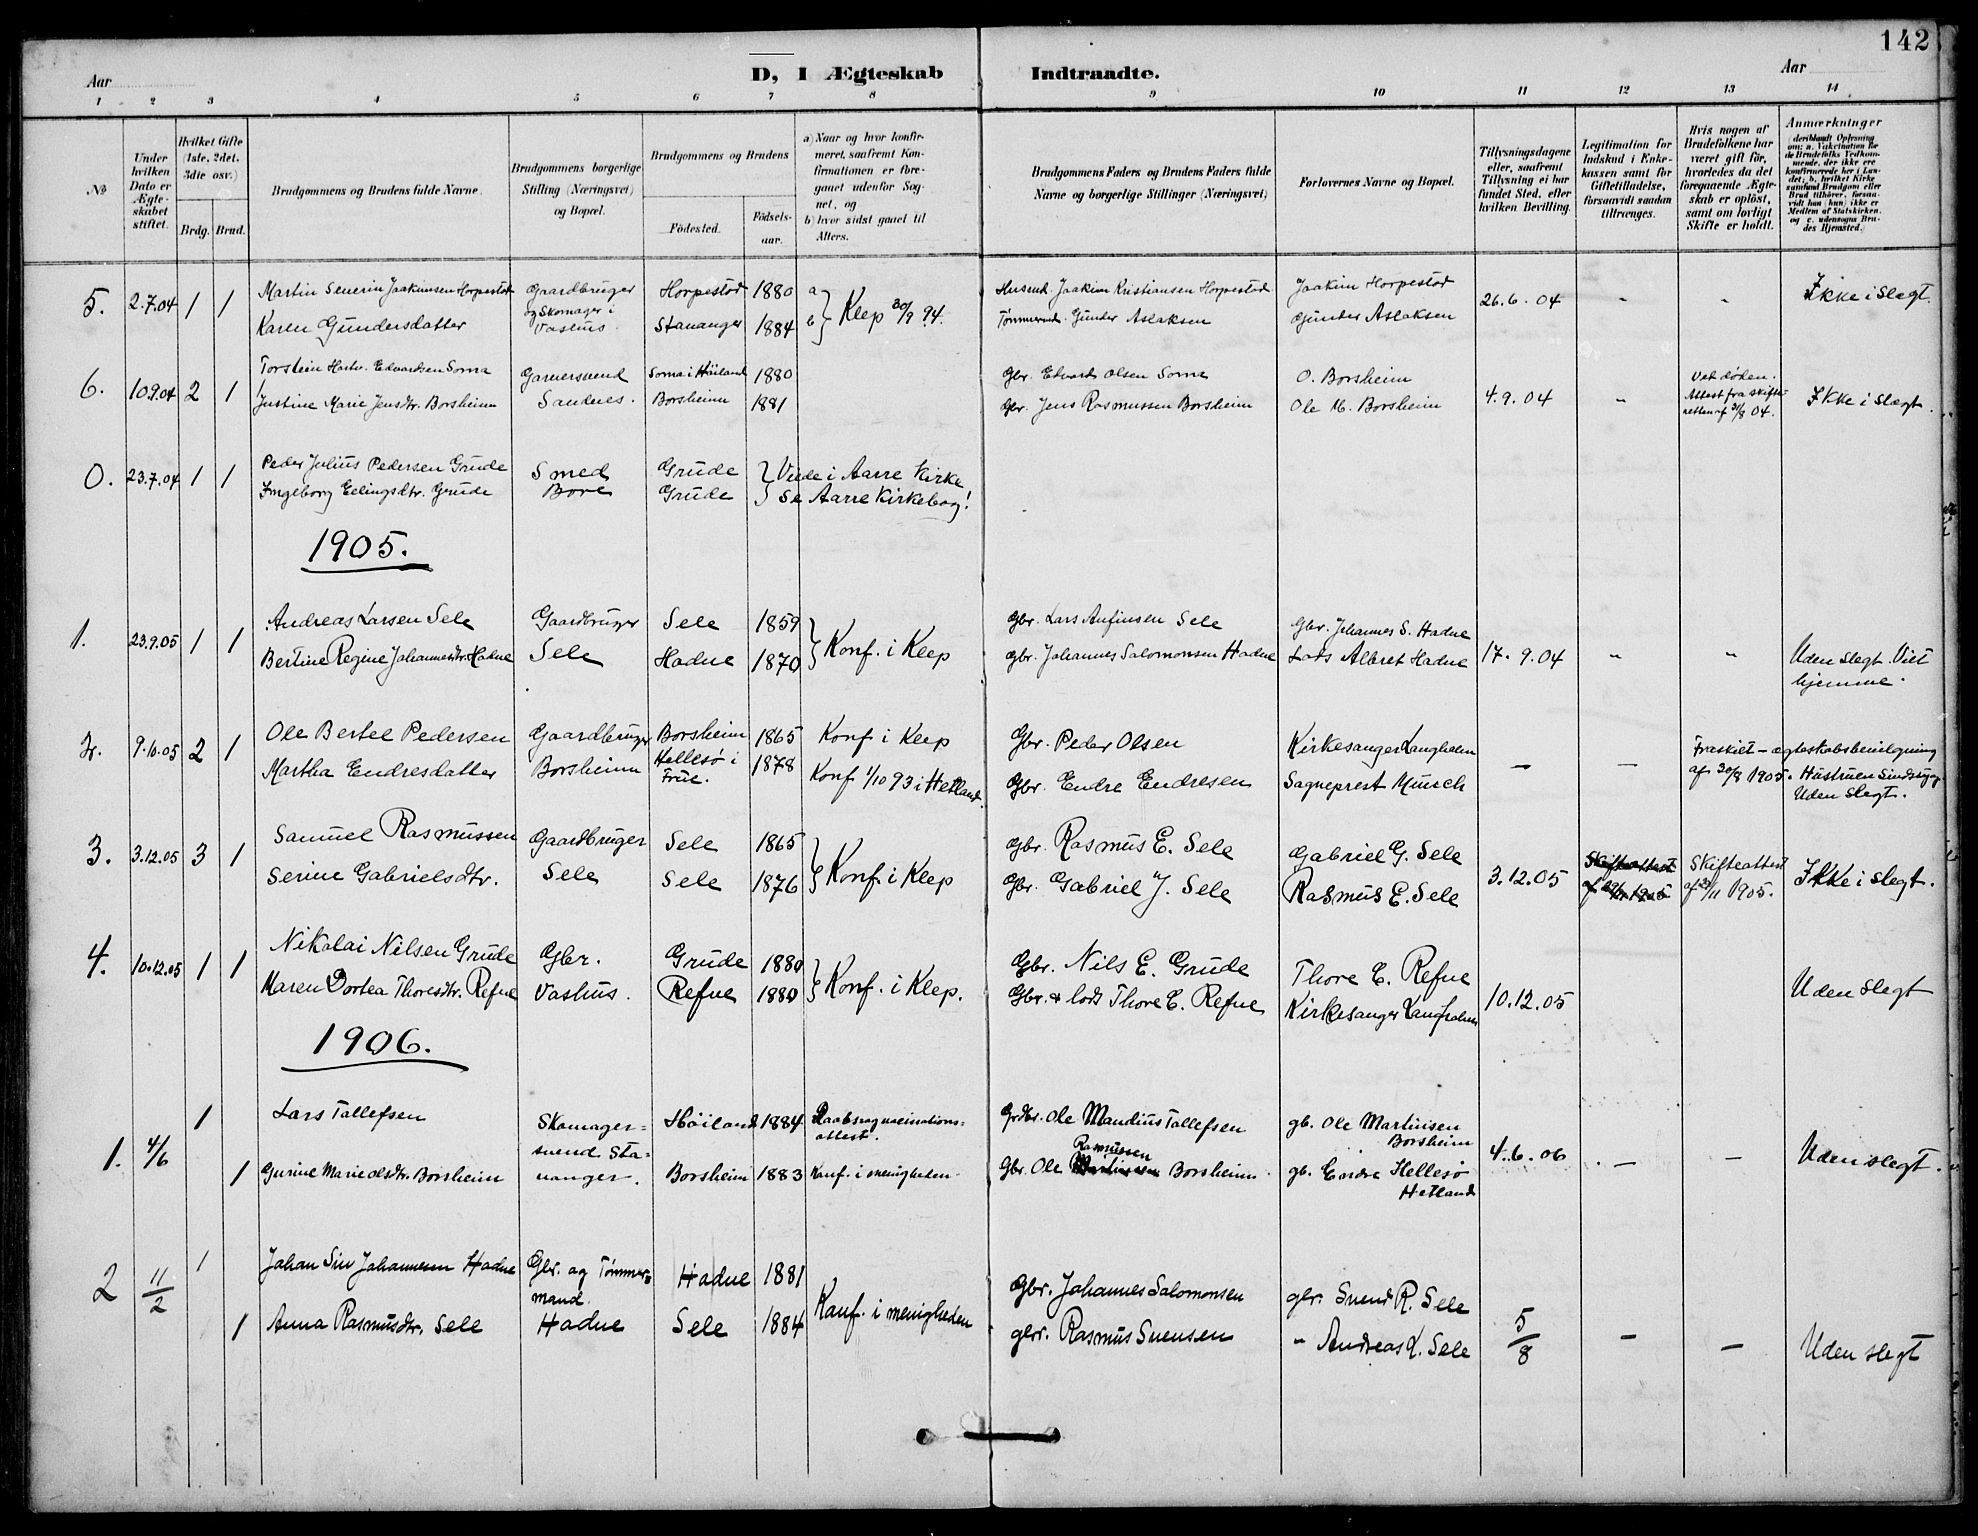 142
D, I Ægteskab Indtraadte.
Aar Aar
1 2 3 4 5 6 7 8 9 10 11 12 13 14
№
Under hvilken Dato er Ægteskabet stiftet.
Hvilket Gifte (1ste, 2det, 3die osv.)
Brdg. Brud.
Brudgommens og Brudens fulde Navne.
Brudgommens borgerlige Stilling (Næringsvei) og Bopæl.
Brudgommens og Brudens
Födested. Födsels-aar.
a) Naar og hvor konfirmeret, saafremt Konfirmationen er foregaaet udenfor Sognet, og
b) hvor sidst gaaet til Alters.
Brudgommens Faders og Brudens Faders fulde Navne og borgerlige Stillinger (Næringsvei)
Forlovernes Navne og Bopæl.
Tillysningsdagene eller, saafremt Tillysning ei har fundet Sted, efter hvilken Bevilling.
Legitimation for Indskud i Enkekassen samt for Giftetilladelse, forsaavidt saadan tiltrænges.
Hvis nogen af Brudefolkene har været gift för, hvorledes da det foregaaende Ægteskab er oplöst, samt om lovligt Skifte er holdt.
Anmærkninger
(deriblandt Oplysning om: a. Vakcination for de Brudefolks Vedkommende, der ikke ere konfirmerede her i Landet; b. hvilket Kirkesamfund Brudgom eller Brud tilhörer, forsaavidt han (hun) ikke er Medlem af Statskirken, og c. udensogns Brudes Hjemsted.)
5. 2.7.04 1 1 Martin Severin Jaakimsen Horpestad Gaardbruger og Skomager i Vashus. Horpestad 1880 a
Karen Gundersdatter Stavanger 1884 b } Klep 30/9 94.
Husmd. Jaakim Kristiansen Horpestad Jaakim Horpestad 26.6.04 " " Ikke i slegt.
Tømmermd. Gunder Aslaksen Gunder Aslaksen
6. 10.9.04 2 1 Torstein Hartv. Edvardsen Soma Garversvend Soma i Höiland 1880
Justine Marie Jensdtr. Borsheim Sandnes. Borsheim 1881
Gbr. Edvard Olsen Soma O. Borsheim 4.9.04 " Ved døden. Attest fra skifteretten af 31/8 04. Ikke i slegt.
Gbr. Jens Rasmussen Borsheim Ole M. Borsheim
0. 23.7.04 1 1 Peder Julius Pedersen Grude Smed Grude } Viede i Aarre Kirke
Ingeborg Elingsdtr. Grude Bore Grude Se Aarre Kirkebog!
1905.
1. 23.9.05 1 1 Andreas Larsen Sele Gaardbruger Sele 1859
Bertine Regine Johannesdtr. Hadne Sele Hadne 1870 } Konf. i Klep
Gbr. Lars Anfinsen Sele Gbr. Johannes S. Hadne
Gbr. Johannes Salomonsen Hadne Lods Albret Hadne 17.9.04 " " Uden slegt. Viet hjemme.
2. 9.10.05 2 1 Ole Bertel Pedersen Gaardbruger Borsheim 1865 Konf i Klep
Martha Endresdatter Borsheim Hellesø i Frue. 1878 Konf 1/10 93 i Hetland.
Gbr. Peder Olsen Kirkesanger Langholm — — Fraskilt - ægteskabsbevilgning
Gbr. Endre Endresen Sogneprest Munch af 30/8 1905. Hustruen sindssyg.
Uden slegt.
3. 3.12.05 3 1 Samuel Rasmussen Gaardbruger Sele 1865
Serine Gabrielsdtr. Sele Sele 1876 } Konf. i Klep
Gbr. Rasmus E. Sele Gabriel G. Sele 3.12.05 Skifteattest Skifteattest af 29/11 1905. Ikke i slegt.
Gbr. Gabriel J. Sele Rasmus E. Sele
4. 10.12.05 1 1 Nikolai Nilsen Grude Gbr. Grude 1880
Maren Dortea Thoresdtr. Refve Vashus. Refve 1880 } Konf. i Klep.
Gbr. Nils E. Grude Thore E. Refve 10.12.05 Uden slegt
Gbr. & lods Thore E. Refve Kirkesanger Langholm
1906.
1. 4/6 1 Lars Tollefsen Skomagersvend Stavanger. Höiland 1884 Daabs og vaccinationsattest.
1 Gurine Marie Olsdtr. Borsheim Borsheim 1883 Konf. i menigheden
Grdbr. Ole Mandius Tollefsen gb. Ole Martinsen Borsheim 4.6.06 — — Uden slegt.
Gbr. Ole Rasmussen Borsheim gb. Endre Hellesø Hetland
2 11/2 1 Johan Siv Johannesen Hadne Gbr. og Tömmermand. Hadne 1881
1 Anna Rasmusdtr. Sele Hadne Sele 1884 Konf. i menigheden
Gbr. Johannes Salomonsen gbr. Svend R. Sele 5/8 — — Uden slegt
gbr. Rasmus Svensen " Andreas L. Sele